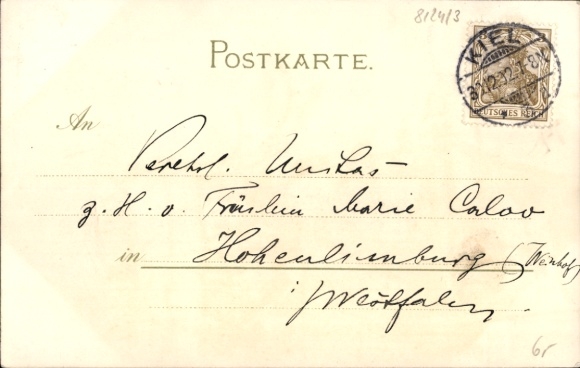 8/24/3
POSTKARTE.
KIEL
DEUTSCHES REICH
An
Verehrl. Unitas
z. H. v. Fräulein Marie Caloo
in Hohenlimburg (Weinhof)
i/Westfalen